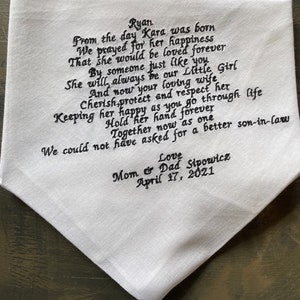 Ryan
From the day Kara was born
We prayed for her happiness
That she would be loved forever
By someone just like you
She will always be our Little Girl
And now your loving wife
Cherish,protect and respect her
Keeping her happy as you go through life
Hold her hand forever
Together now as one
We could not have asked for a better son-in-law
Love
Mom & Dad Sipowicz
April 17, 2021